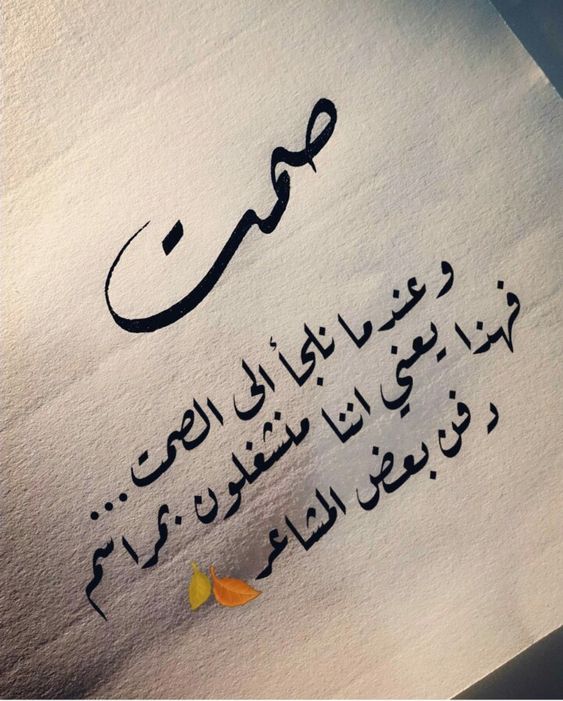 صمت
و عندما نلجأ ألى الصمت...
فهذا يعني اننا منشغلون بمراسم
دفن بعض المشاعر